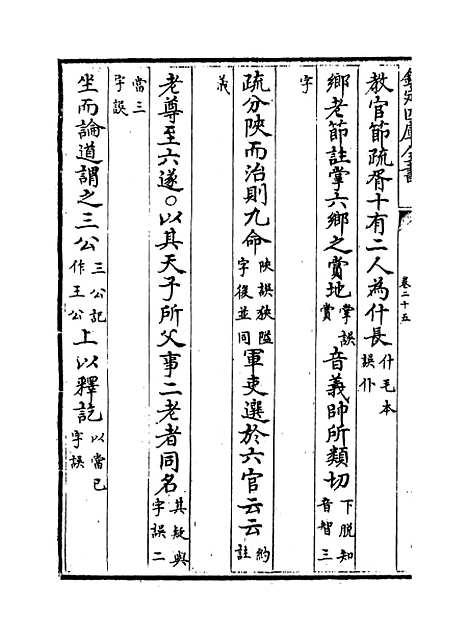 欽定四庫全書
卷二十五
教官節疏胥十有二人為什長什毛本誤仆
鄉老節註掌六鄉之賞地掌誤賞音義師所類切下脫知音智三
字
疏分陜而治則九命陜誤狹隘字後並同軍吏選於六官云云約註
義
老尊至六遂○以其天子所父事二老者同名其疑與字誤二
當三字誤
坐而論道謂之三公三公記作王公上以釋訖以當已字誤